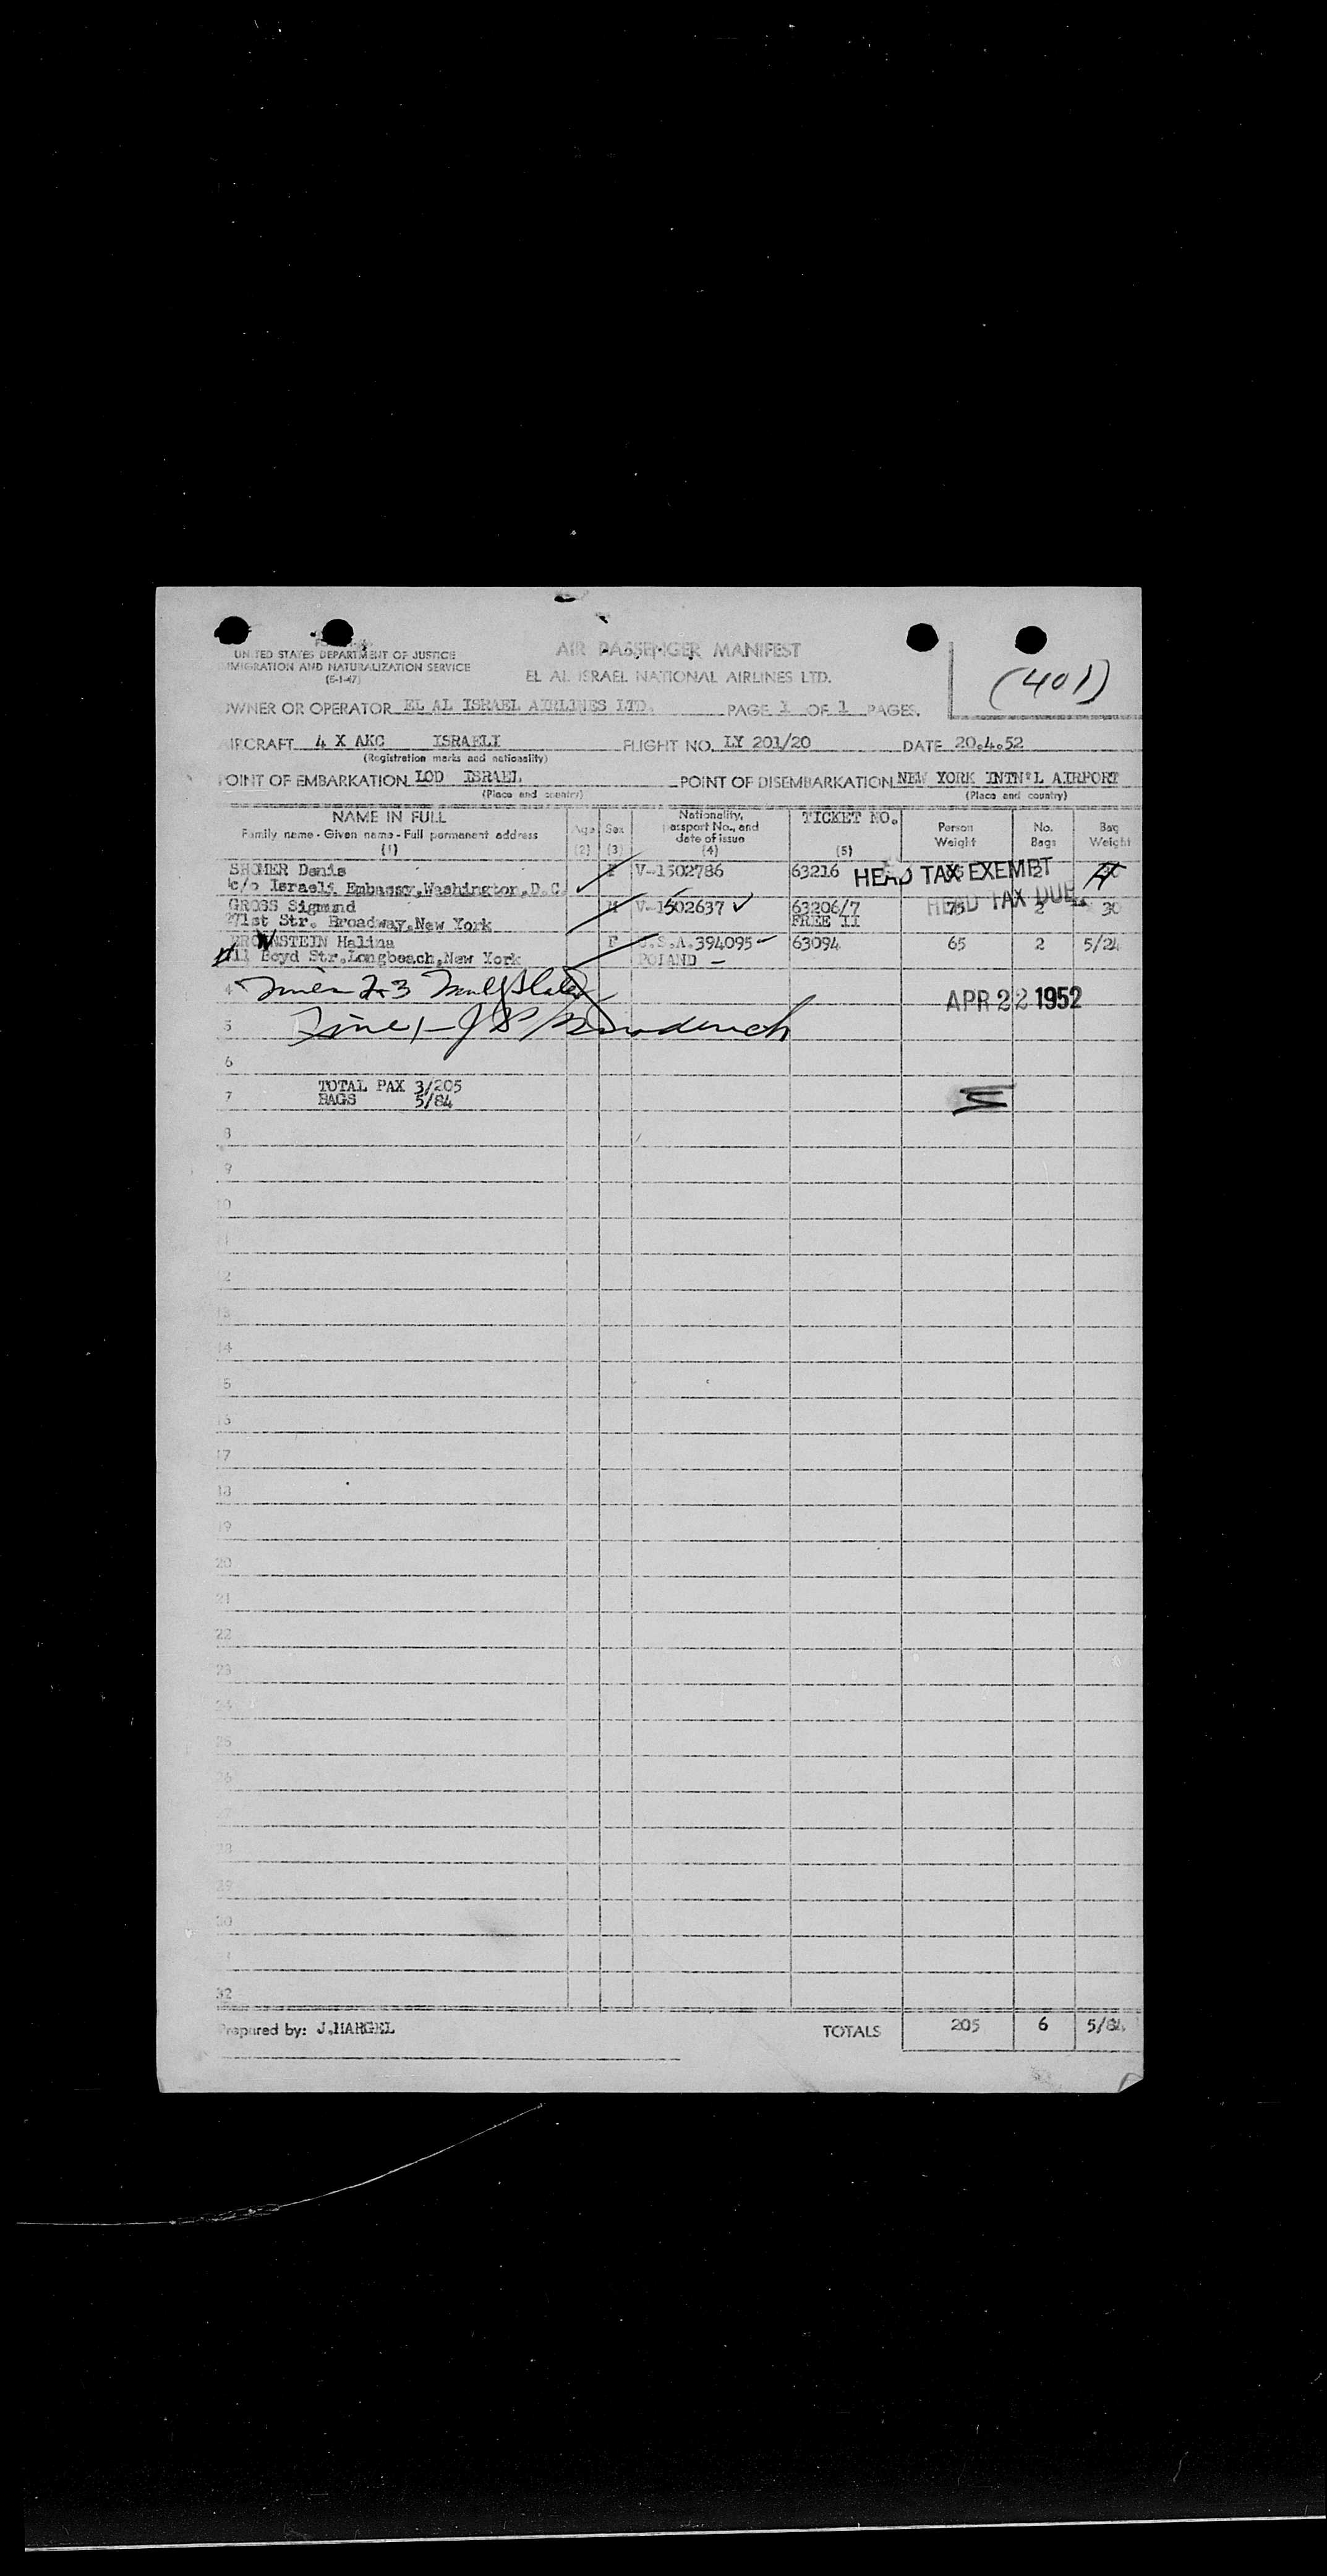 UNITED STATES DEPARTMENT OF JUSTICE
IMMIGRATION AND NATURALIZATION SERVICE
(5-1-47)
AIR PASSENGER MANIFEST
EL AL ISRAEL NATIONAL AIRLINES LTD.
(401)
OWNER OR OPERATOR EL AL ISRAEL AIRLINES LTD. PAGE 1 OF 1 PAGES.
AIRCRAFT 4 X AKC ISRAELI FLIGHT NO. LY 201/20 DATE 20.4.52
(Registration marks and nationality)
POINT OF EMBARKATION LOD ISRAEL POINT OF DISEMBARKATION NEW YORK INTN'L AIRPORT
(Place and country) (Place and country)
NAME IN FULL
Family name - Given name - Full permanent address
(1)
Age
(2)
Sex
(3)
Nationality, passport No., and date of issue
(4)
TICKET NO.
(5)
Person Weight
No. Bags
Bag Weight
SHOMER Denis F V-1502786 63216 HEAD TAX EXEMPT
c/o Israeli Embassy,Washington,D.C.
HEAD TAX DUE
GROSS Sigmund M V-1502637 63206/7 75 2 30
71st Str. Broadway,New York FREE II
BROWNSTEIN Halina F U.S.A.394095 63094 65 2 5/24
11 Boyd Str.,Longbeach,New York POLAND
4 2+3
APR 22 1952
5
6
7 TOTAL PAX 3/205
BAGS 5/84
8
9
10
11
12
13
14
15
16
17
18
19
20
21
22
23
24
25
26
27
28
29
30
32
Prepared by: J.HARGEL TOTALS 205 6 5/84